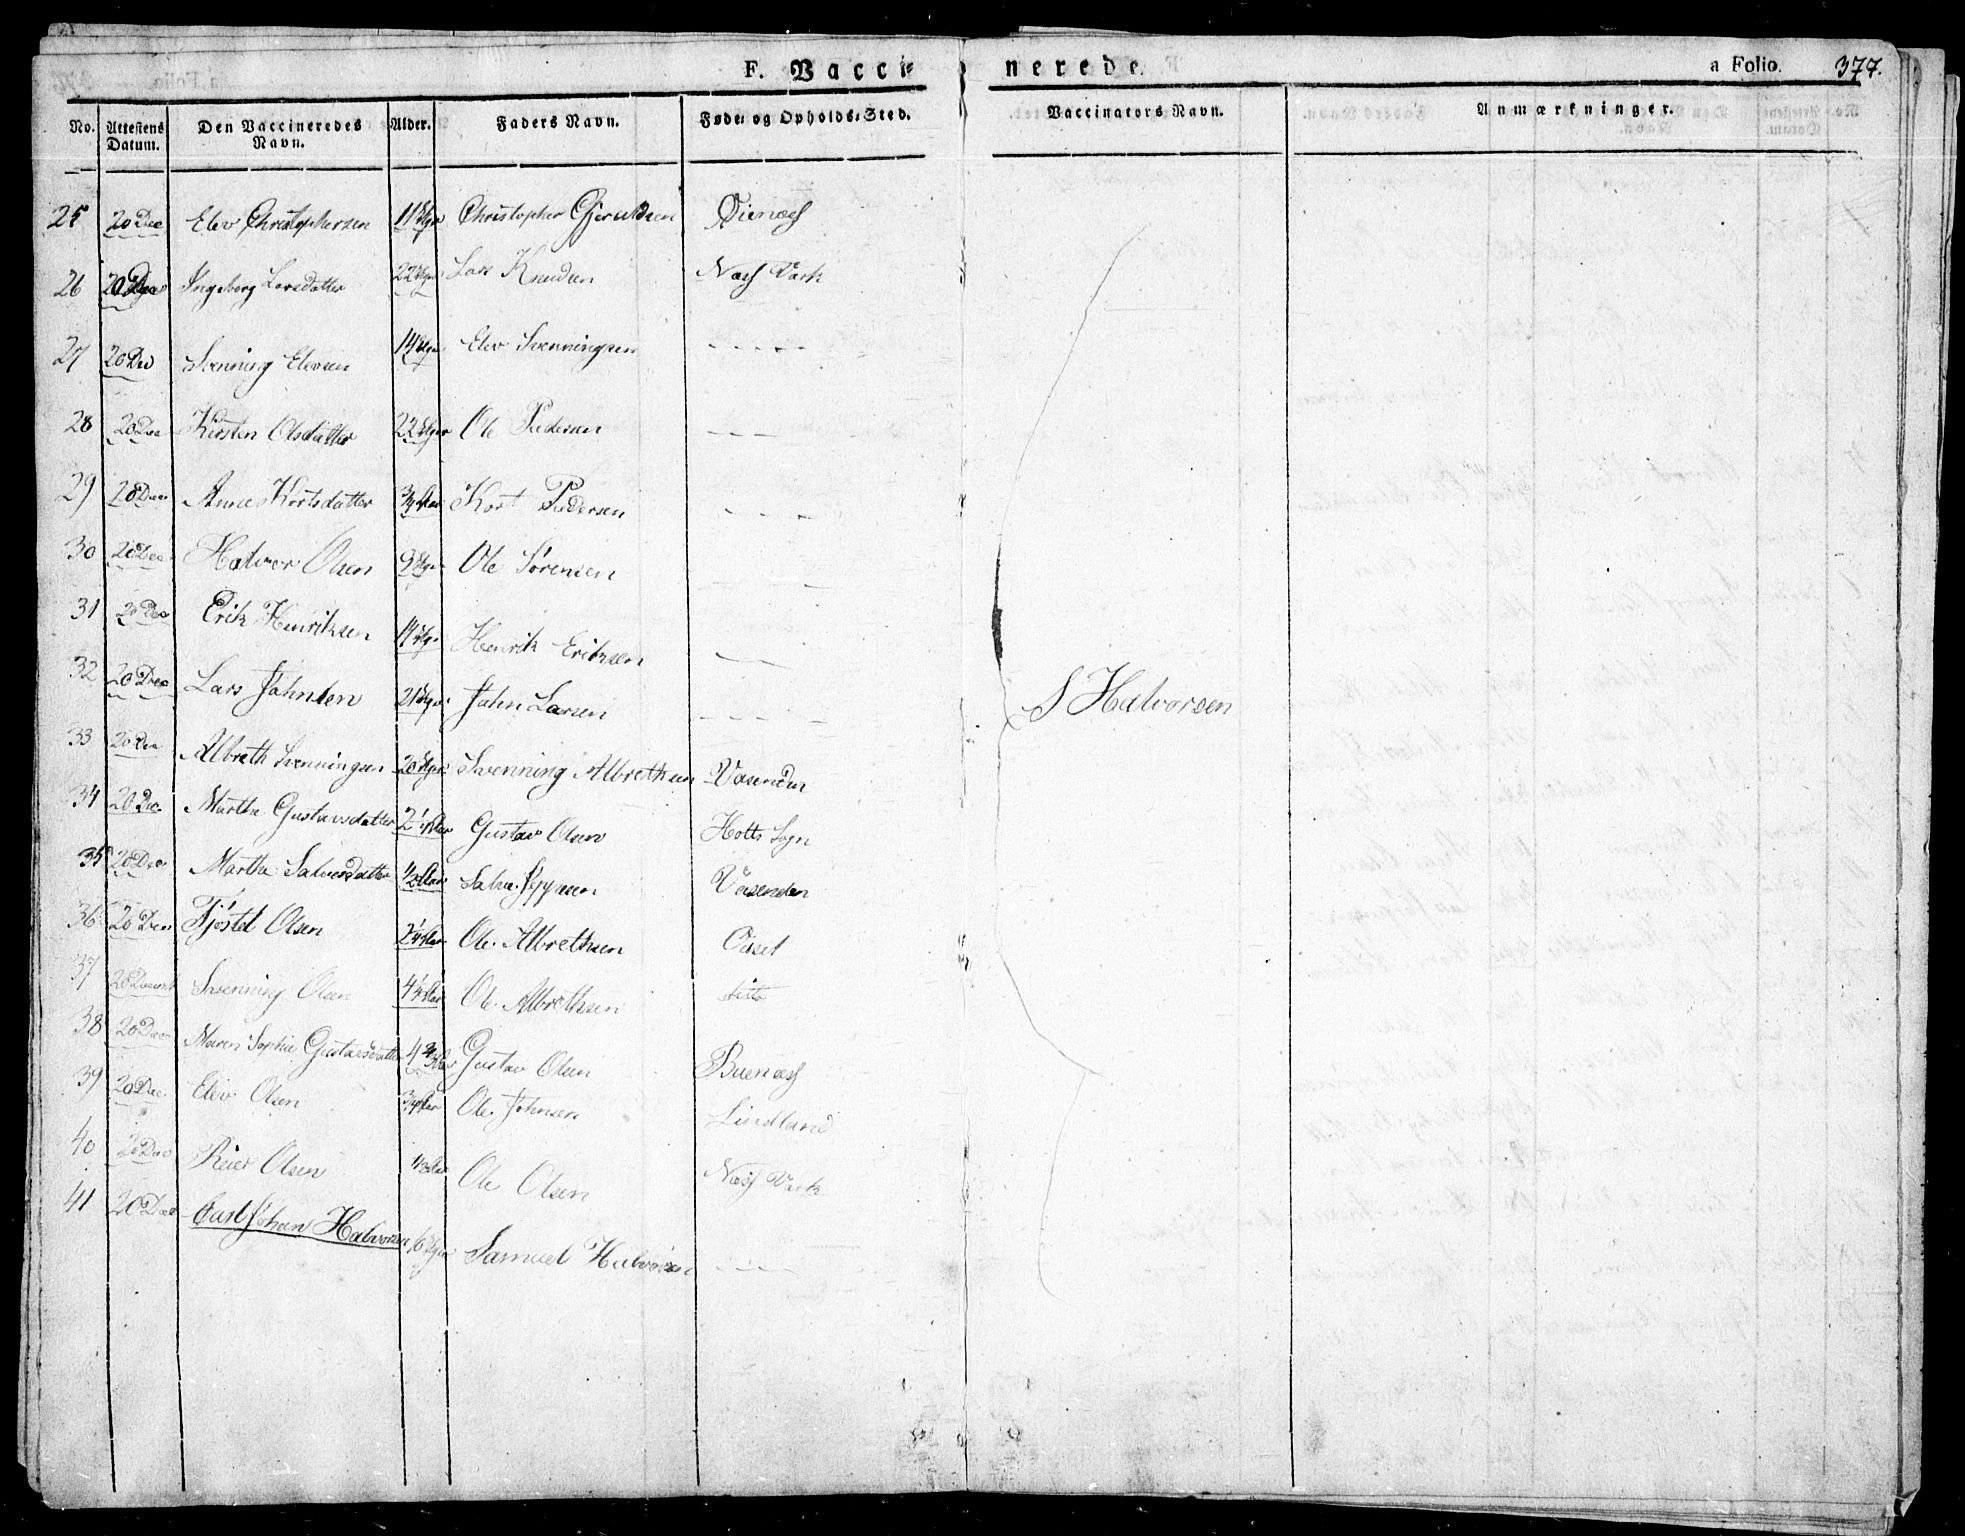 F. Vacci= nerede. a Folio. 377.
No. Attestens Datum. Den Vaccineredes Navn. Alder. Faders Navn. Føde- og Opholds-Sted. Vaccinators Navn. Anmærkninger.
25 20 Dec Elev Christophersen 11 Christopher
26 20 Ingeborg Larsdatter 22 Lars Knudsen Næss Værk
27 20 Dec Svenning Elevsen 14 Elev Svenningsen - - - - -
28 20 Dec Kirsten Olsdatter 22 Ole Pedersen - - - -
29 20 Dec Anne Kortsdatter 3/4 Aar Kort Pedersen - - - -
30 20 Dec Halvor Olsen 9 Ole Sørensen - - - -
31 20 Dec Erik Henriksen 14 Henrik Eriksen - - - -
32 20 Dec Lars Jahnsen 21 Jahn Larsen - - - -
S Halvorsen
33 20 Dec Albreth Svenningsen 20 Svenning Albrethsen Vasenden
34 20 Dec Martha Gustavsdatter 2 1/4 Aar Gustav Olsen Holts Sogn
35 20 Dec Martha Salvesdatter 1/2 Aar Salve Jeppesen Vasenden
36 20 Dec Tjøstel Olsen 2 1/4 Aar Ole Albrethsen
37 20 Decemb Svenning Olsen 4 1/4 Aar Ole Albrethsen ditto
38 20 Decm Maren Sophie Gustavsdatter 4 Gustav Olsen Buenæss
39 20 Dec Elev Olsen 3/4 Aar Ole Johnsen Lindland
40 20 Dec Reier Olsen Ole Olsen Næss Værk
41 20 Dec Carl Johan Halvorsen 16 Samuel Halvorsen - - - -